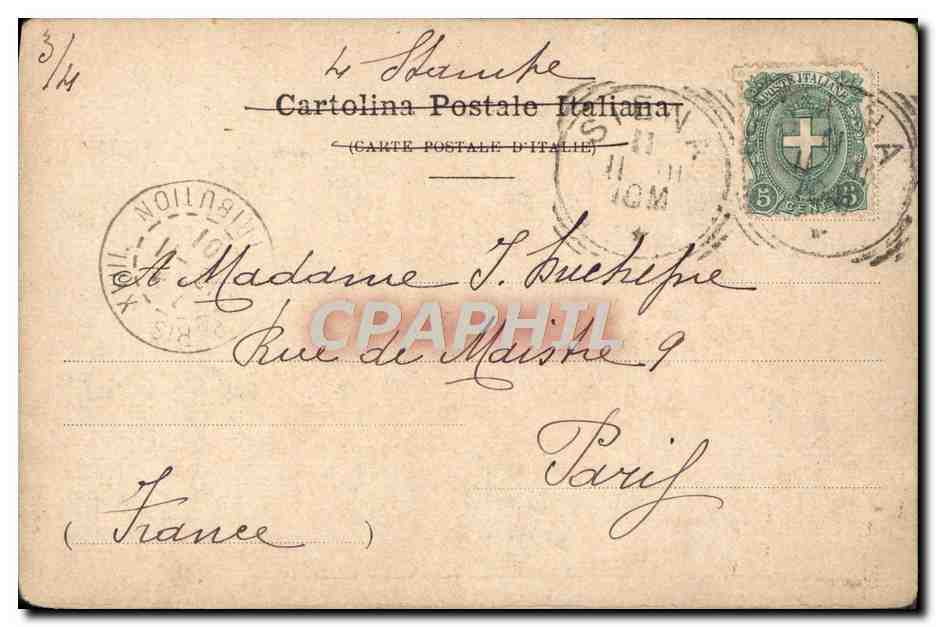 3/4
4 Stampe
Cartolina Postale Italiana
(CARTE POSTALE D'ITALIE)
POSTE ITALIANE
5 CENT 5
SIENA
11
10M
DISTRIBUTION
PARIS XVIII
01
A Madame J. Duchesne
CPAPHIL
Rue de Maistre 9
Paris
(France)